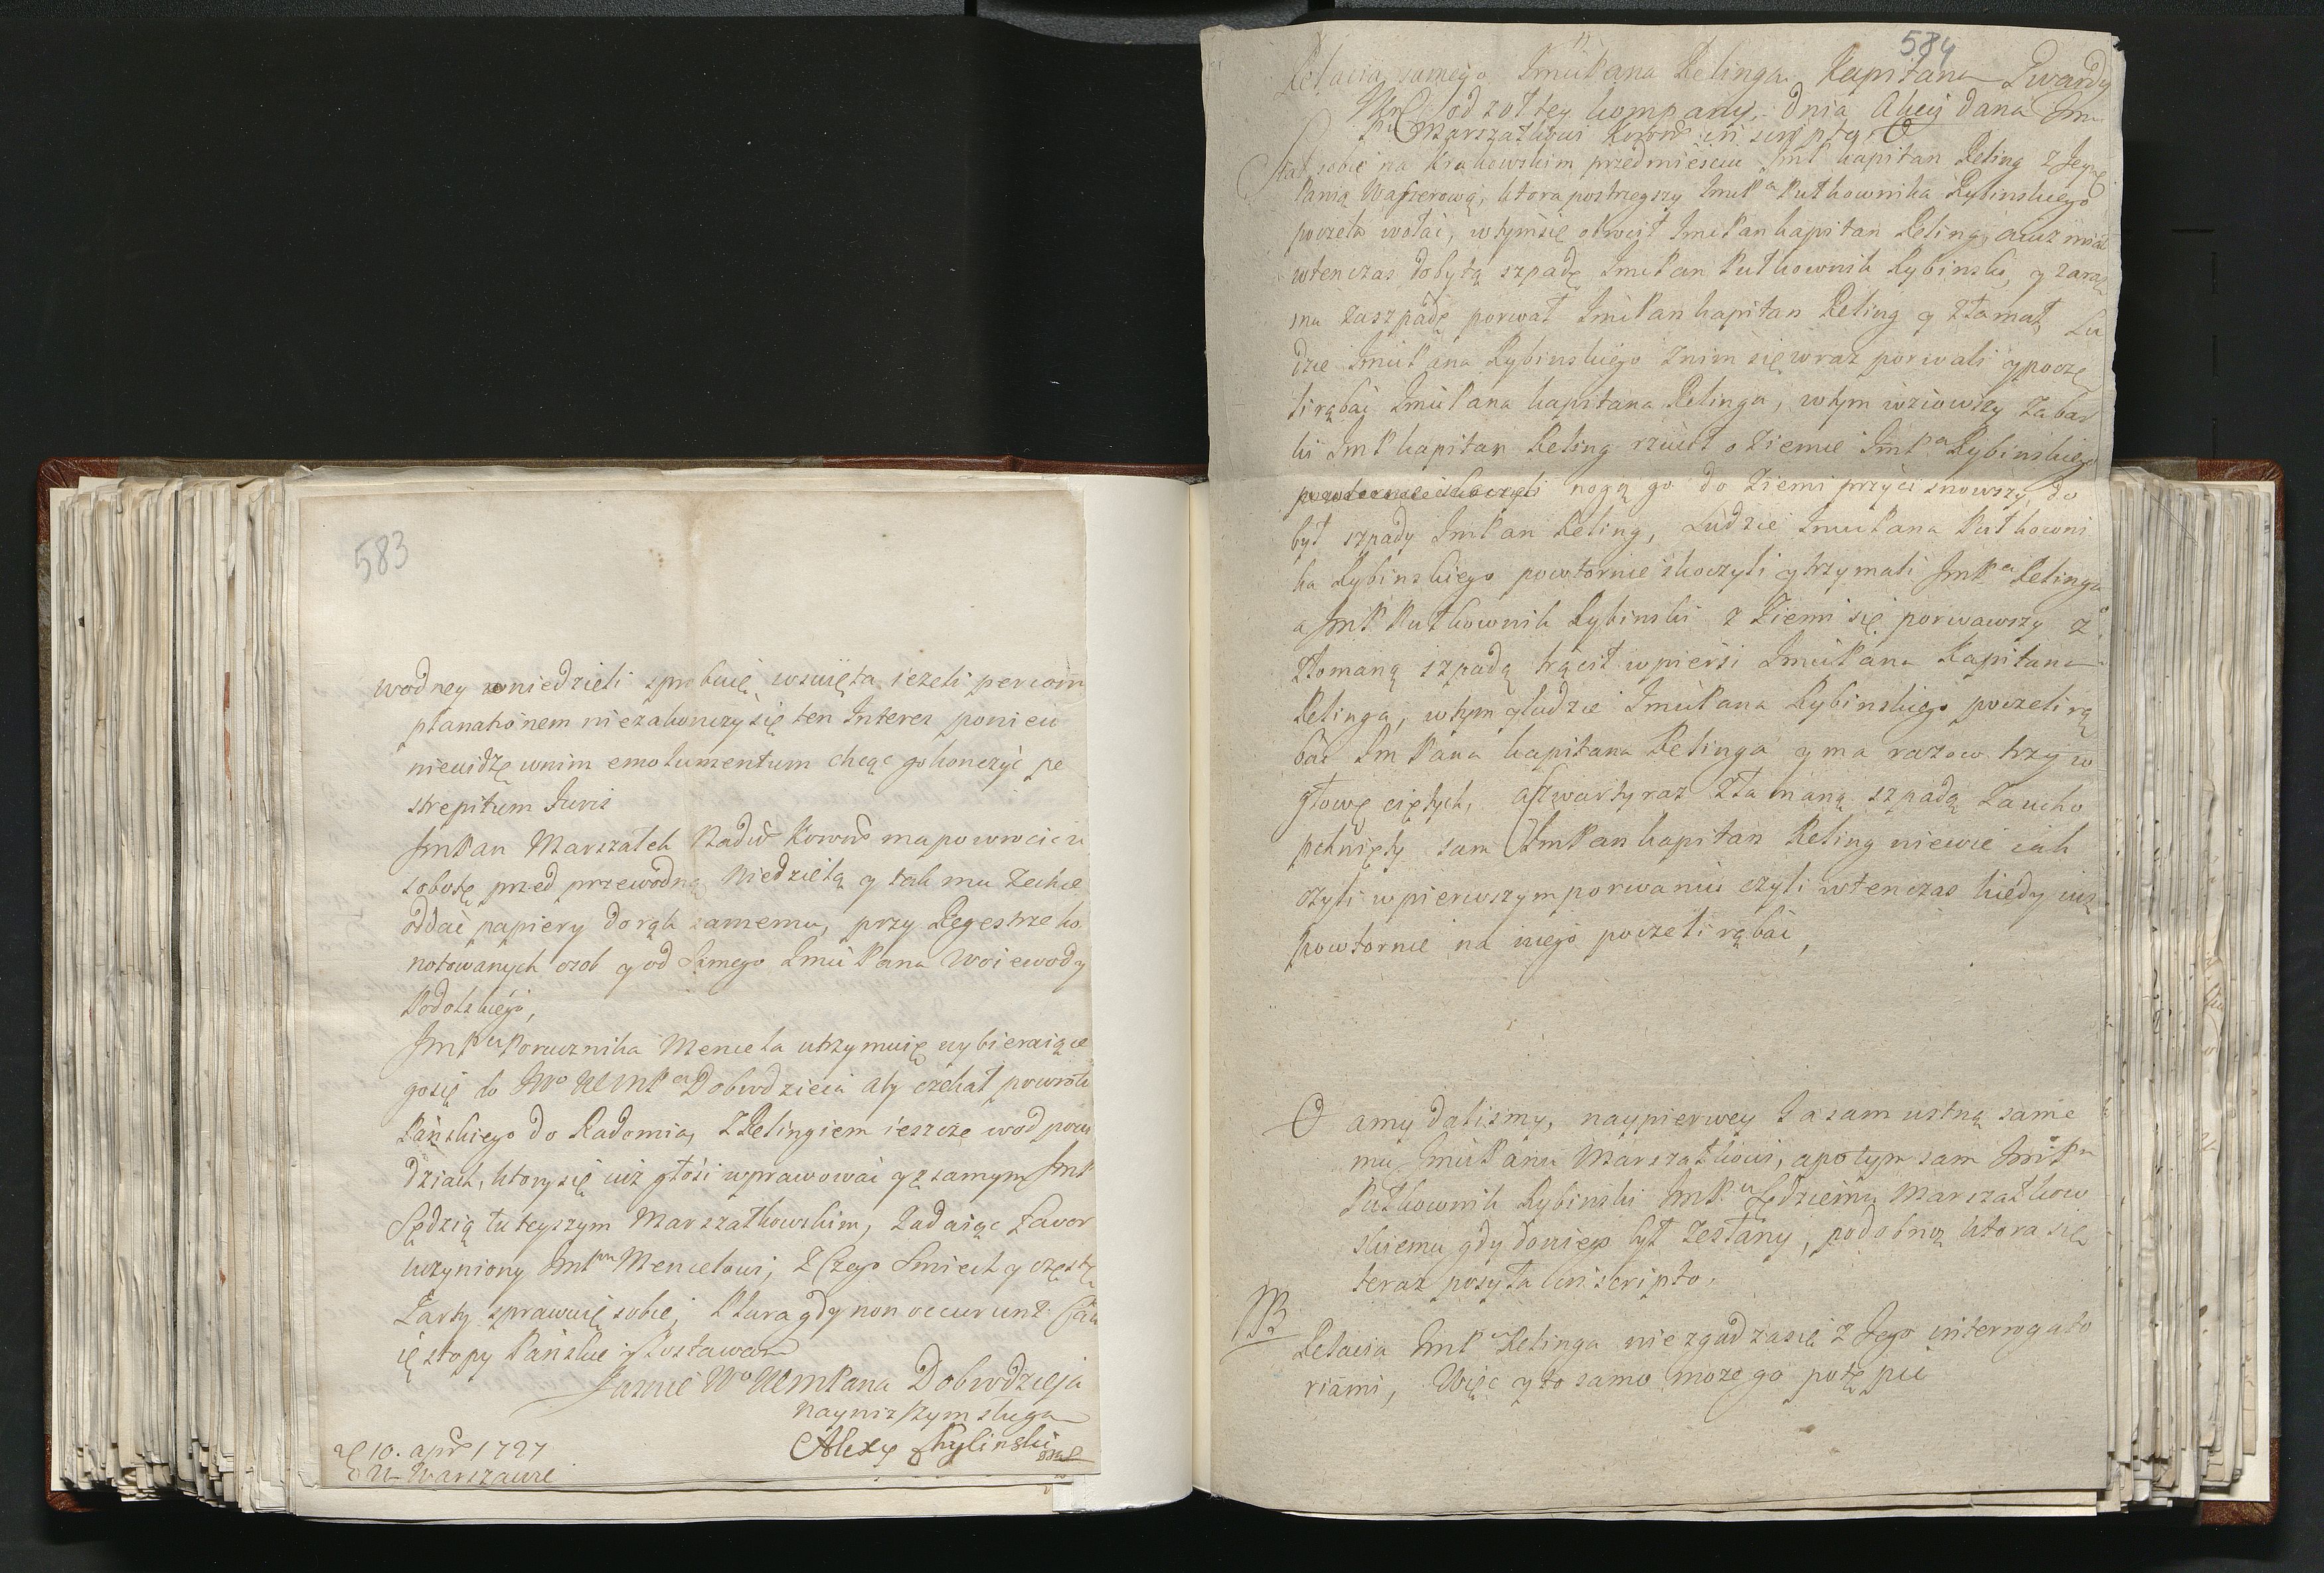 583
wodney w niedzieli sprobuię, wswięta iezeli per com
planationem niezakonczy się ten Interes poniew
niewidzę wnim emolumentum chcąc go konczyć per
strepitum Iuris
JmPan Marszałek Nadw Koron ma powrocic w
sobotę przed przewodną Niedzielą y tak mu zechce
oddać papiery do rąk samemu, przy Regestrze ko
notowanych osob y od samego Jmci Pana Woiewody
Podolskiego,
JmPa Porucznika Mencla utrzymuię wybieraiące
go się do JWo WJmPa Dobrodzieia aby czekał powrotu
Pańskiego do Radomia, Z Relingiem ieszcze wod powi
dziach, ktory się iuż głosi wprawować y z samym JmP
Sędzią tuteyszym Marszałkowskim, Zadaiąc favor
uczyniony JmPanu Menclowi, z czego smiech y częste
Żarty sprawuię sobie, Plura gdy non occurunt Cału
ię stopy Pańskie y Zostawam
Jasnie Wo WJmPana Dobrodzieja
nayniższym sługą
Alexy Kylinski
d 10. apr 1727
w Warszawie
584
Relacia samego Jmci Pana Relinga Kapitana Gwardy
od zołtey kompany, dnia dana Jm
Pu Marszałkowi Koron in scripto
Stał sobie na Krakowskim przedmiesciu JmP kapitan Reling z Jeymc
Panią Wasserową, ktora postrzegszy JmciPa Pułkownika Rybinskiego
poczeła wołać, wtym się obrocił Jmci Pan kapitan Reling, a iuz miał
wtenczas dobytą szpadę Jmci Pan Pułkownik Rybinski, y zaraz
mu za szpadę porwał Jmci Pan kapitan Reling y złamał, Lu
dzie Jmci Pana Rybinskiego znim się wraz porwali y poczę
li rąbać Jmci Pana kapitana Relinga, wtym wziowszy za bar
ki JmP kapitan Reling rzucił o ziemie JmPa Rybinskiego
nogą go do Ziemi przycisnowszy, do
był szpady JmPan Reling, Ludzie Jmci Pana Pułkowni
ka Rybinskiego powtornie skoczyli y trzymali JmPa Relinga
a JmP Pułkownik Rybinski z Ziemi się porwawszy z
złomaną szpadą trącił w piersi Jmci Pana Kapitana
Relinga, wtym y ludzie Jmci Pana Rybinskiego poczeli rą
bać Jm Pana kapitana Relinga y ma razow trzy w
głowę ciętych, a czwarty raz złamaną szpadą za ucho
pchnięty sam JmPan kapitan Reling niewie iak
czyli w pierwszym porwaniu czyli wtenczas kiedy iuz
powtornie na niego poczeli rąbać,
O amy dalismy, naypierwey Ja sam ustną same
mu Jmci Panu Marszałkowi, a potym sam JmPn
Pułkownik Rybinski JmPu Sędziemu Marszałkow
skiemu gdy do niego był zesłany, podobną ktora się
teraz posyła in scripto.
NB
Relacia JmPa Relinga nie zgadza się z Jego interrogato
riami, Więc y to samo moze go potępić